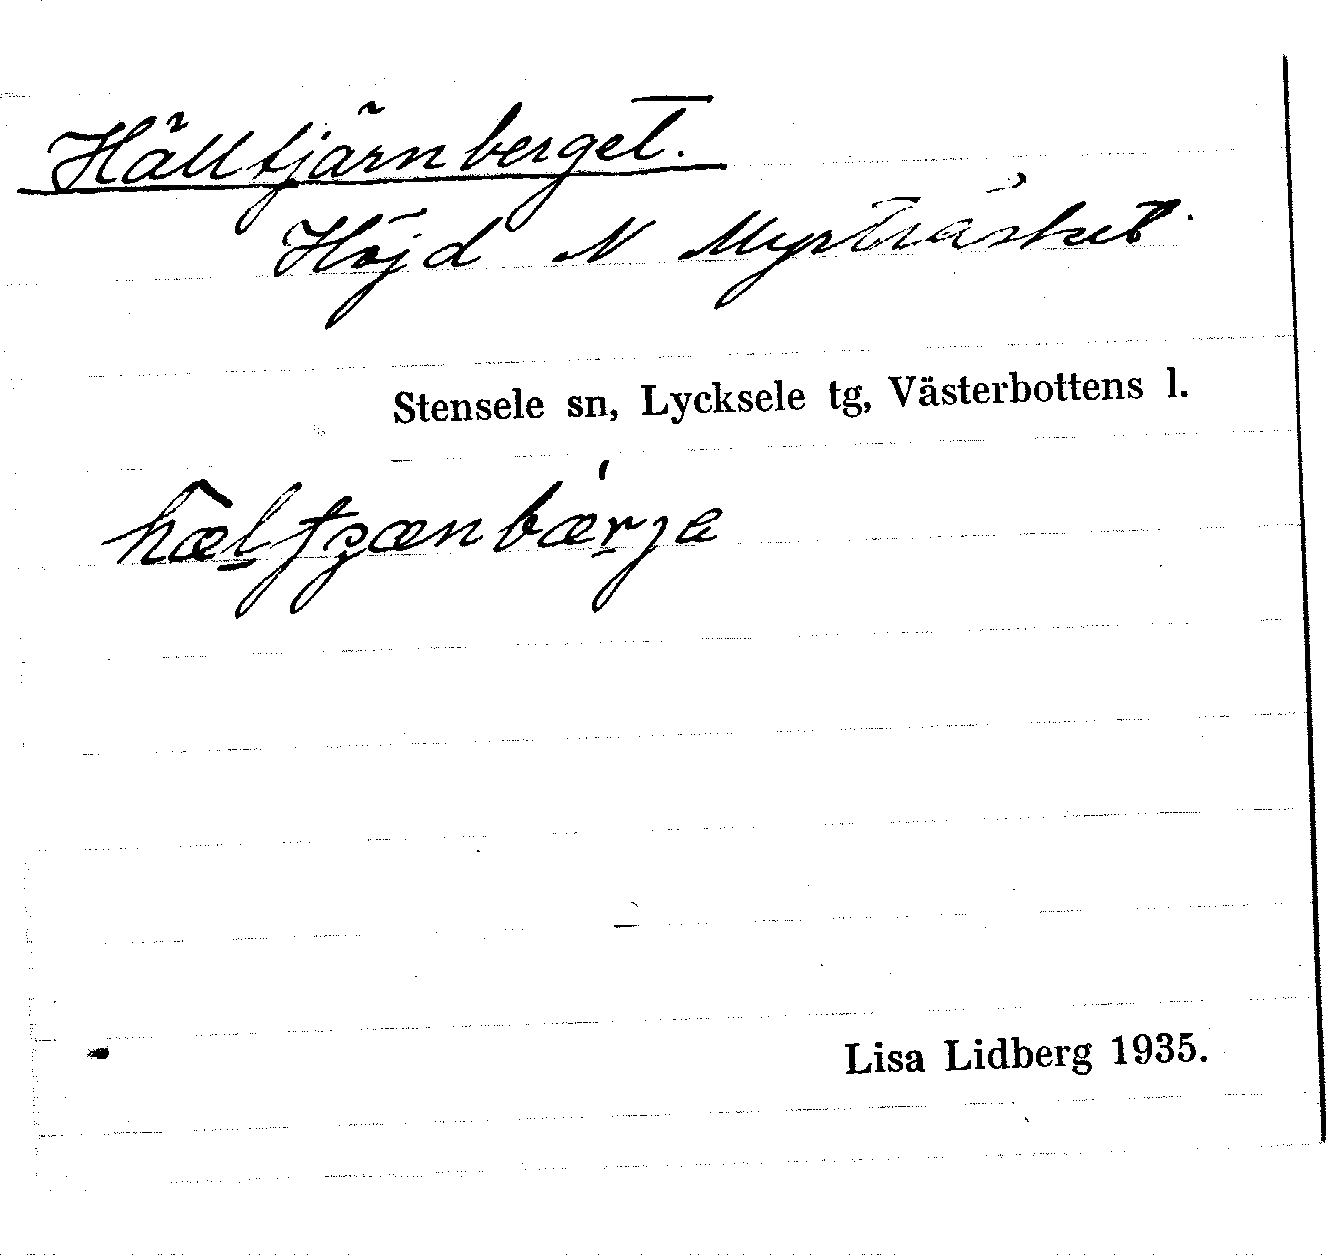 Hälltjärnberget.
Höjd N Myrträsket.
Stensele sn, Lycksele tg, Västerbottens l.
Lisa Lidberg 1935.